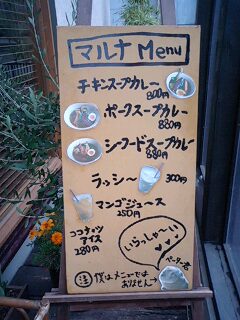 マルナ Menu
チキンスープカレー
800円
ポークスープカレー
880円
シーフードスープカレー
880円
ラッシ〜 300円
マンゴジュース
250円
ココナッツ
アイス
280円
いらっしゃ〜い
注 僕はメニューでは
ありませんっ